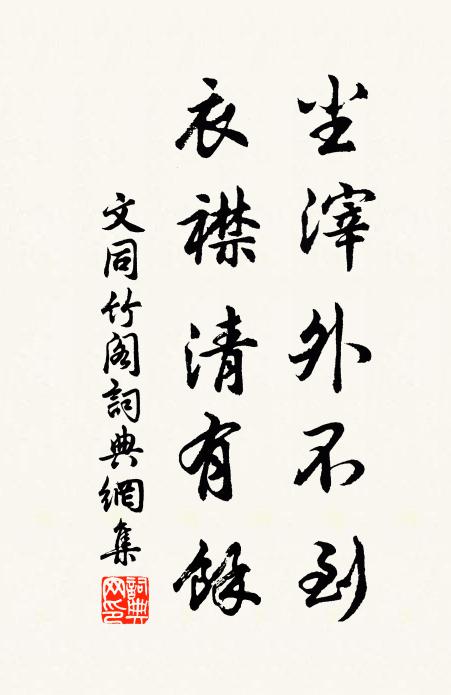 尘滓外不到
衣襟清有餘
文同竹阁詞典網集
詞典网印